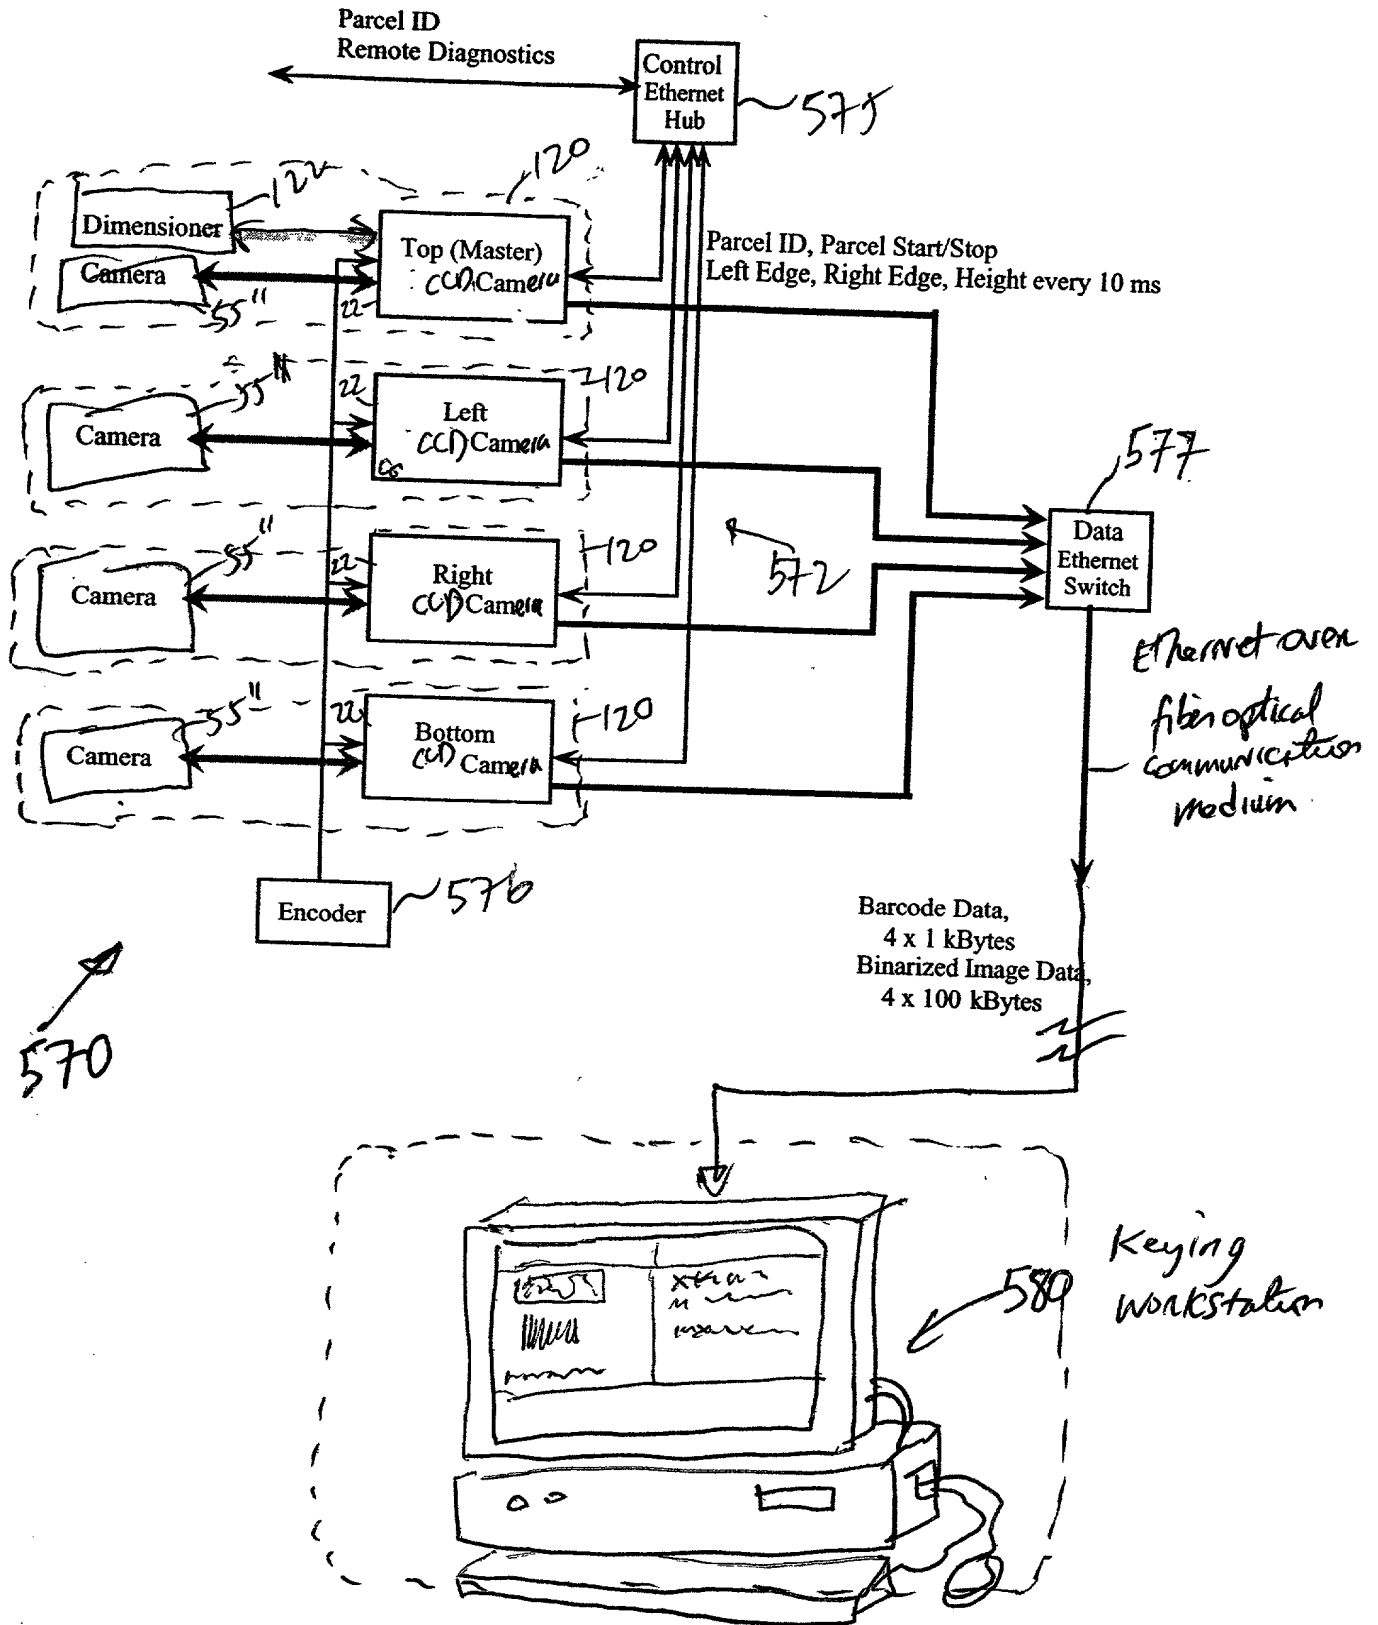 Parcel ID
Remote Diagnostics
Control
Ethernet
Hub
575
122
120
Dimensioner
Camera
55"
Top (Master)
CCD Camera
22
Parcel ID, Parcel Start/Stop
Left Edge, Right Edge, Height every 10 ms
55"
Camera
22
Left
CCD Camera
120
577
Data
Ethernet
Switch
572
55"
Camera
22
Right
CCD Camera
120
Ethernet over
fiber optical
communication
medium
55"
Camera
22
Bottom
CCD Camera
120
Encoder
576
Barcode Data,
4 x 1 kBytes
Binarized Image Data,
4 x 100 kBytes
570
580
Keying
workstation